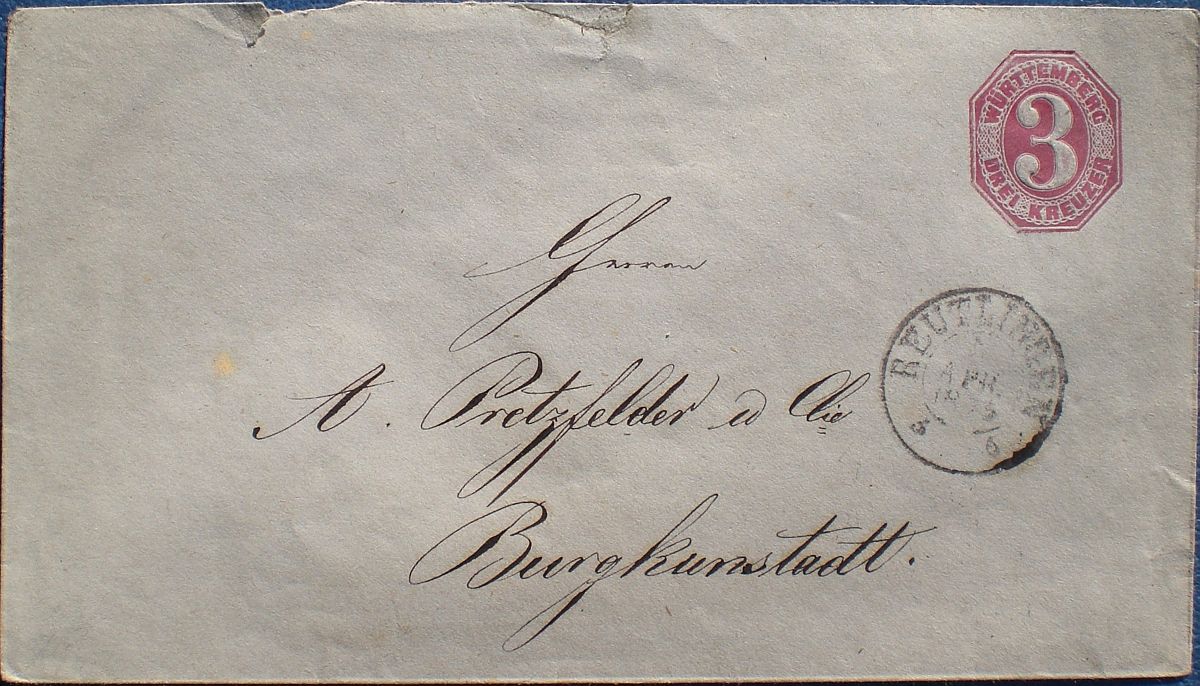 WÜRTTEMBERG
3
DREI KREUZER
Herren
A. Pretzfelder u Cie
Burgkunstadt.
REUTLINGEN
APR.